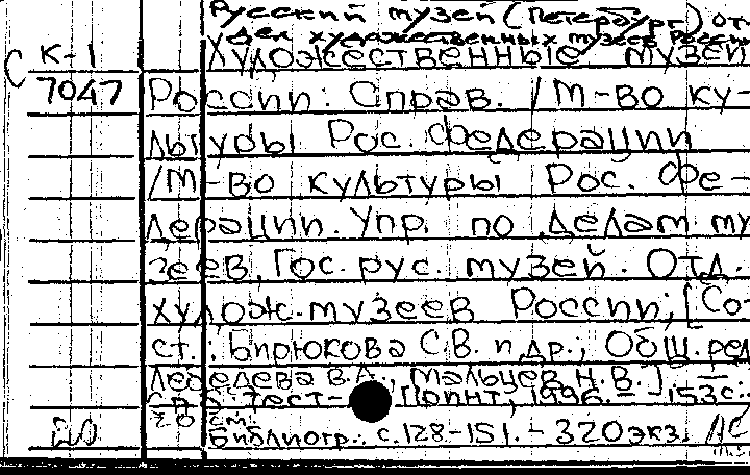 Русский музей (Петербург) от
дел художественных музеев России
К-1 Художественные музеи
С
7047 России: Справ. /М-во ку-
льтуры Рос. Федерации
/М-во культуры Рос. Фе-
дерации. Упр. по делам му
зеев, Гос. рус. музей. Отд.
худож. музеев России; [Со-
ст.: Бирюкова С.В. и др.; Общ. ред
Лебедева В.А., Мальцев Н.В.]
Тест- Принт, 1996. - 153с.
20 см.
20 Библиогр.: с.128-151. - 320экз.